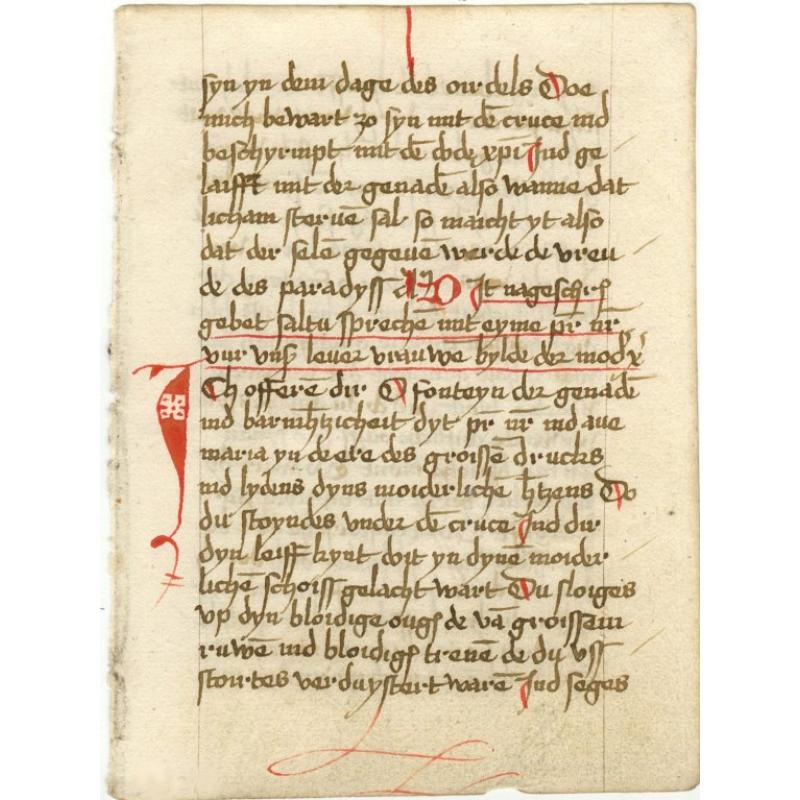 syn yn dem dage des oirdels Doe
mich bewart zo syn mit dē cruce ind
beschyrmpt mit dē dode xpi Ind ge
laifft mit der genadē also wanne dat
licham stervē sal so maicht yt also
dat der selē gegevē werde de vreu
de des paradyss Dit nageschr
gebet saltu sprechē mit eyme pr nr
vur vns lever vrauwē bylde der
Ich offerē dir O fonteyn der genadē
ind barmhtzicheit dyt pr nr ind ave
maria yn de ere des groissē drucks
ind lydens dyns moiderlichē htzens Do
du stoyndes vnder dē cruce Ind dir
dyn leiff kynt doit yn dynē moider
lichē schoiss gelacht wart Du sloiges
vp dyn bloidige oug de vā groissem
ruwē ind bloidig trenē de du vss
stortes verduystert warē Ind seges